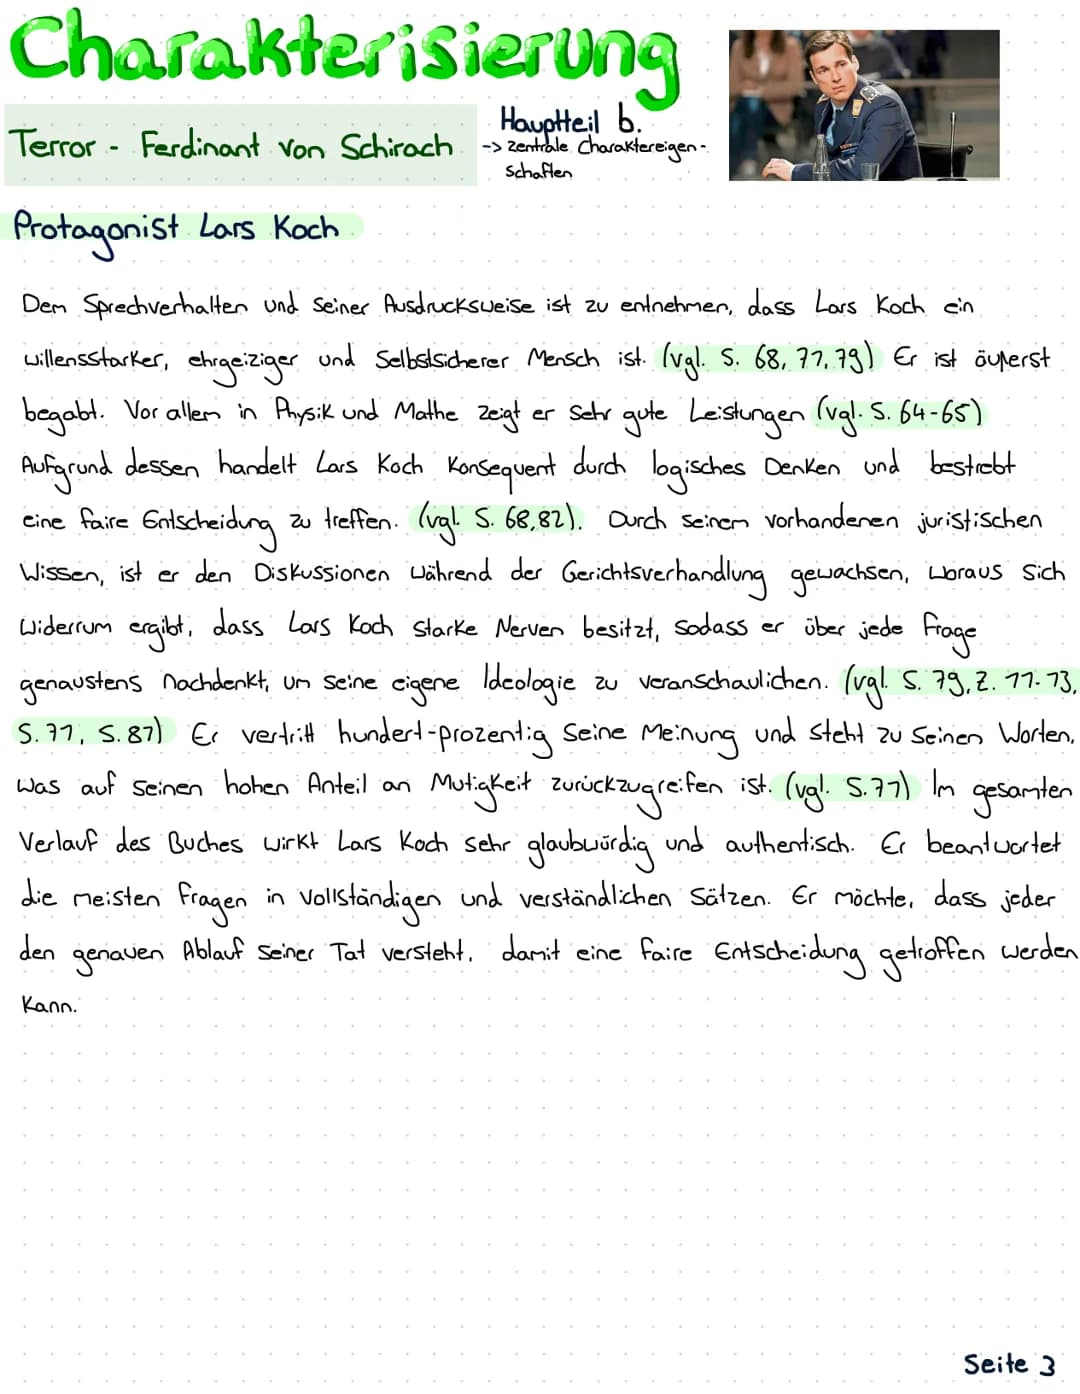 Charakterisierung
Terror - Ferdinant von Schirach
Hauptteil b.
-> zentrale Charaktereigen-
schaften
Protagonist Lars Koch
Dem Sprechverhalten und seiner Ausdrucksweise ist zu entnehmen, dass Lars Koch ein
willensstarker, ehrgeiziger und Selbstsicherer Mensch ist. (vgl. S. 68, 77, 79) Er ist äußerst
begabt. Vor allem in Physik und Mathe zeigt er sehr gute Leistungen (vgl. S. 64-65)
Aufgrund dessen handelt Lars Koch Konsequent durch logisches Denken und bestrebt
eine faire Entscheidung zu treffen. (vgl. S. 68,82). Durch seinem vorhandenen juristischen
Wissen, ist er den Diskussionen während der Gerichtsverhandlung gewachsen, woraus sich
widerrum ergibt, dass Lars Koch starke Nerven besitzt, sodass er über jede Frage
genaustens nachdenkt, um seine eigene Ideologie zu veranschaulichen. (vgl. S. 79, Z. 11-13,
S. 77, S. 87) Er vertritt hundert-prozentig seine Meinung und steht zu seinen Worten,
was auf seinen hohen Anteil an Mutigkeit zurückzugreifen ist. (vgl. S.77) Im gesamten
Verlauf des Buches wirkt Lars Koch sehr glaubwürdig und authentisch. Er beantwortet
die meisten Fragen in vollständigen und verständlichen Sätzen. Er möchte, dass jeder
den genauen Ablauf seiner Tat versteht, damit eine faire Entscheidung getroffen werden
kann.
Seite 3